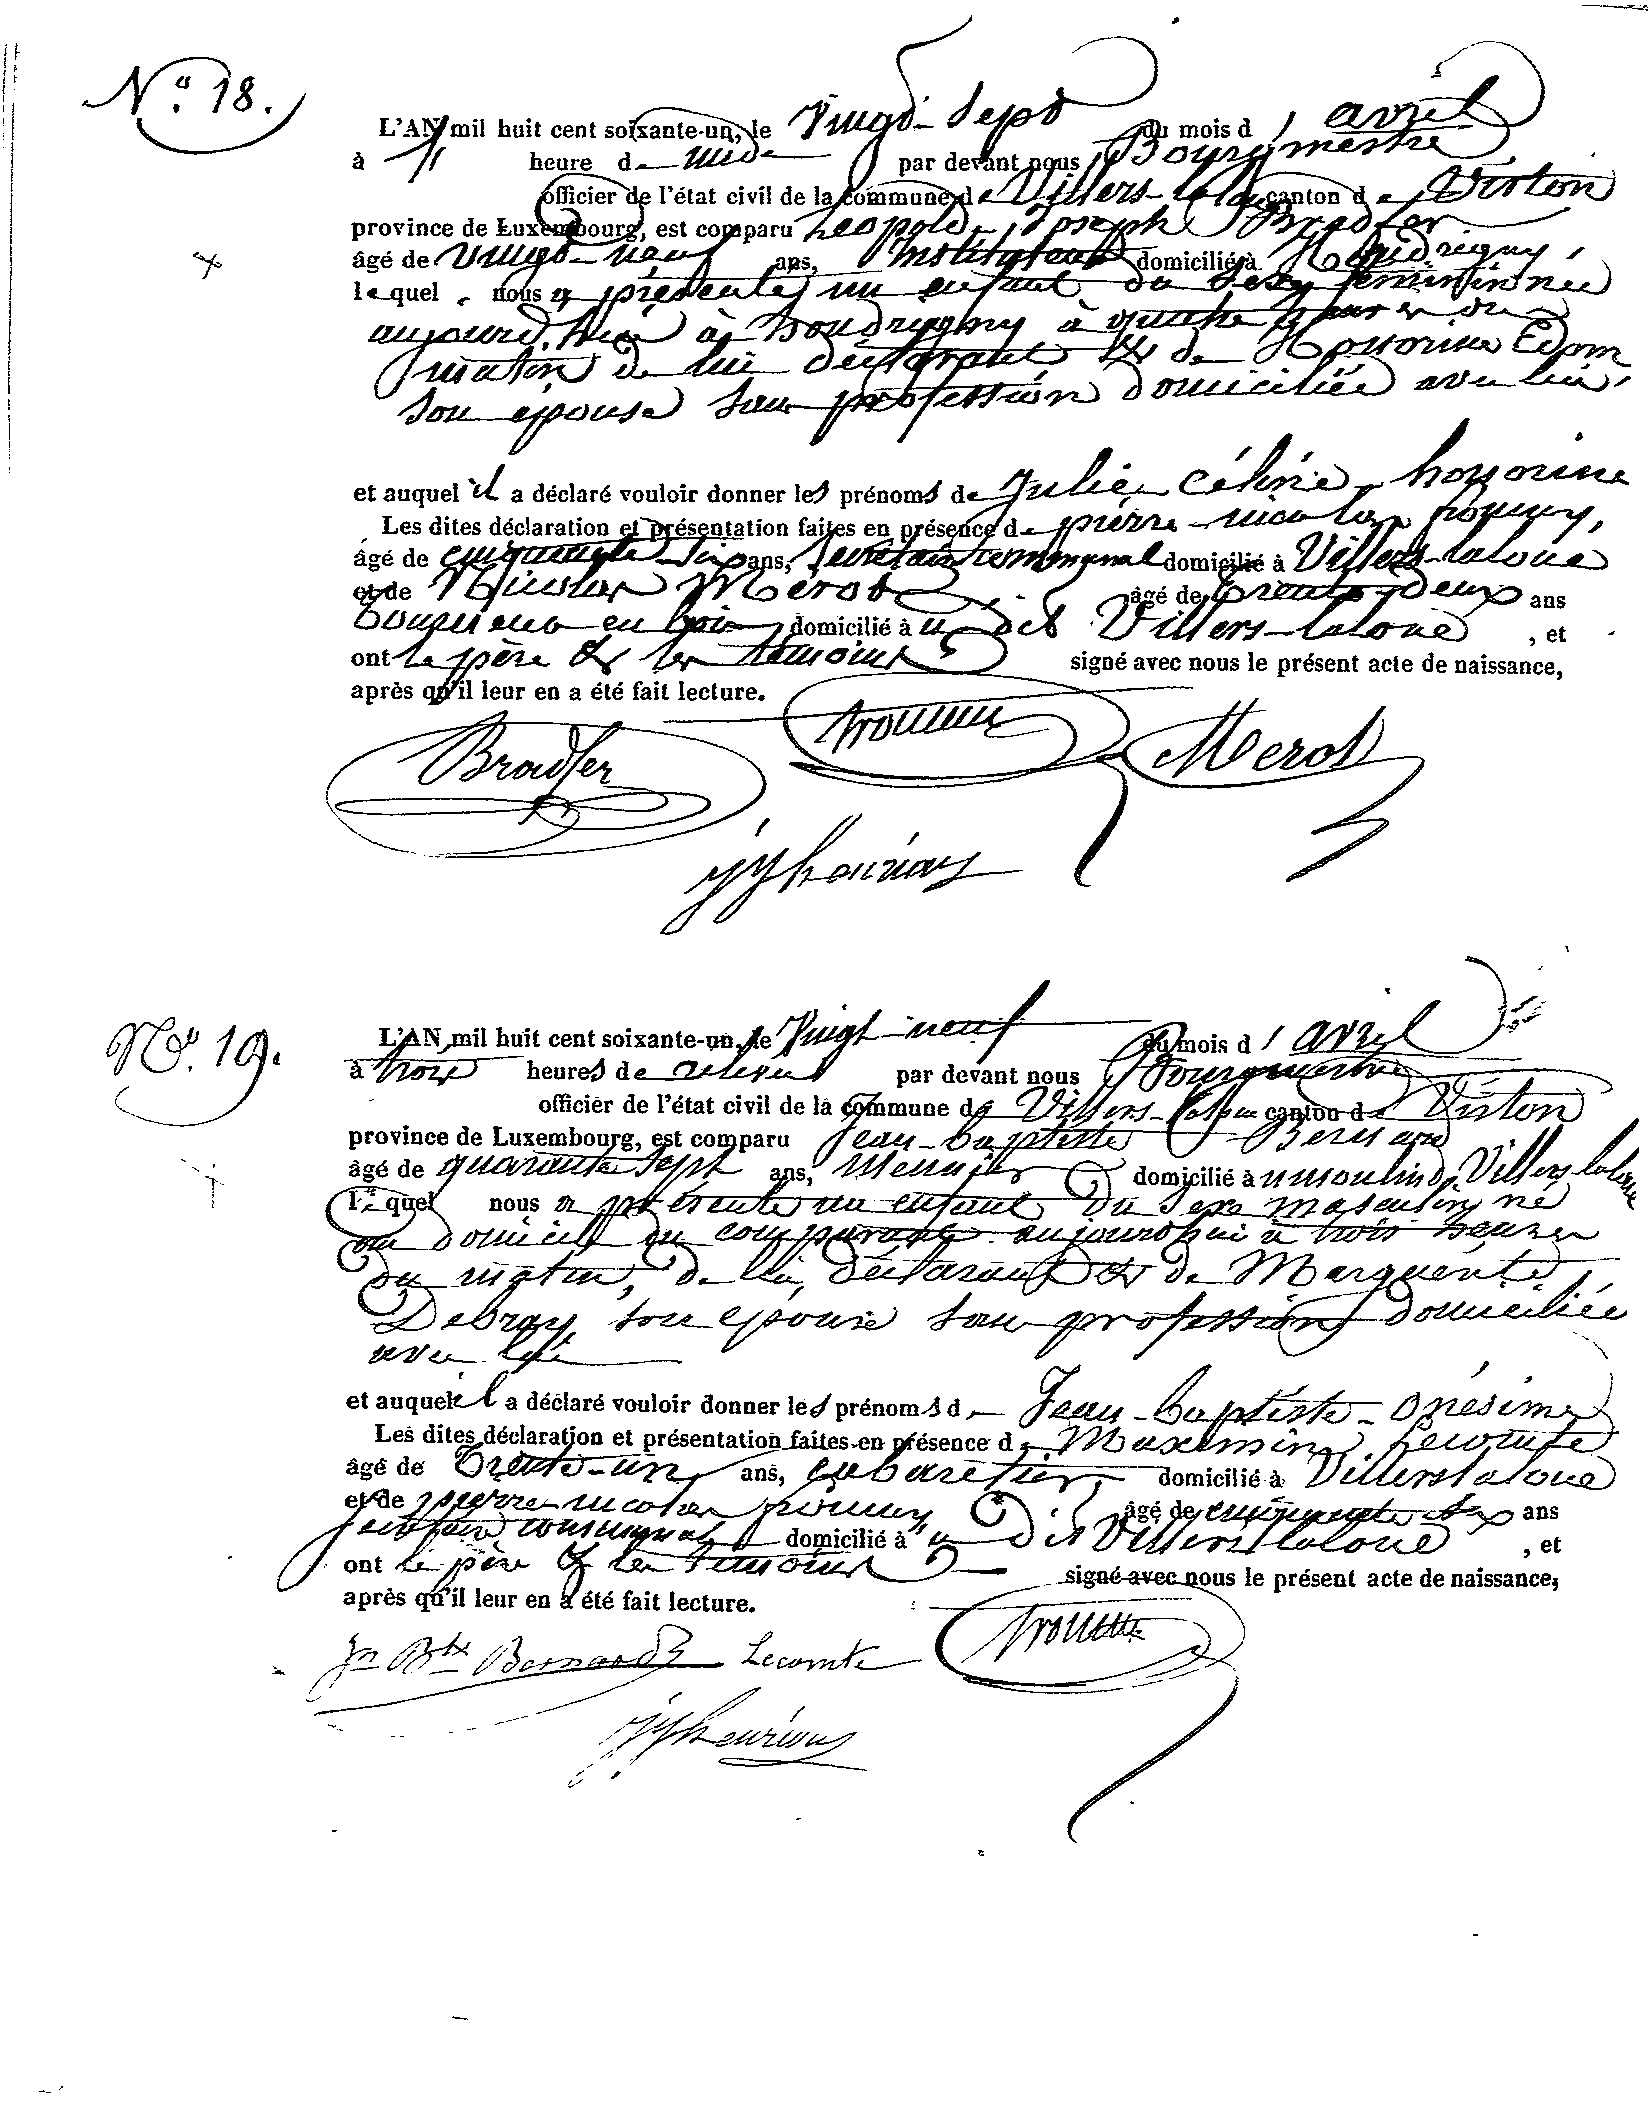 N.° 18.
L'AN mil huit cent soixante-un, le Vingt-Sept du mois d'avril
à heure de midi par devant nous Bourgmestre
officier de l'état civil de la commune de Villers-la canton de Virton
province de Luxembourg, est comparu Léopold Joseph Bradfer
âgé de vingt-neuf ans, Instituteur domicilié à Houdrigny,
lequel nous a présenté un enfant du sexe féminin née
aujourd'hui à houdrigny à quatre heures du
matin de lui déclarant & de Honorine Edom
son épouse sans profession domiciliée avec lui,
et auquel il a déclaré vouloir donner les prénoms de Julie, Céline honorine
Les dites déclaration et présentation faites en présence de pierre-nicolas
âgé de cinquante-six ans, Secrétaire communal domicilié à Villers-laloue
et de Nicolas Mérot âgé de trente-deux ans
domicilié à u dit Villers-laloue , et
ont le père & les témoins signé avec nous le présent acte de naissance,
après qu'il leur en a été fait lecture.
Bradfer Merot
N.° 19.
L'AN mil huit cent soixante-un, le Vingt-neuf du mois d'avril
à trois heures de relevée par devant nous Bourgmestre
officier de l'état civil de la commune de Villers- canton de Virton
province de Luxembourg, est comparu Jean-baptiste Bernard
âgé de quarante sept ans, Meunier domicilié à u moulin de Villers laloue
lequel nous a présenté un enfant du sexe masculin né
au domicile du comparant aujourd'hui à trois heures
du matin, de lui, déclarant & de Marguerite
Debray son épouse sans profession domiciliée
avec lui
et auquel il a déclaré vouloir donner les prénoms de Jean-baptiste-onésime
Les dites déclaration et présentation faites en présence de Maximin Lecomte
âgé de Trente-un ans, cabaretier, domicilié à Villers laloue
et de pierre-nicolas âgé de cinquante six ans
secrétaire communal domicilié à u Dit Villers laloue , et
ont le père & les témoins signé avec nous le présent acte de naissance,
après qu'il leur en a été fait lecture.
Jn Bte Bernard Lecomte